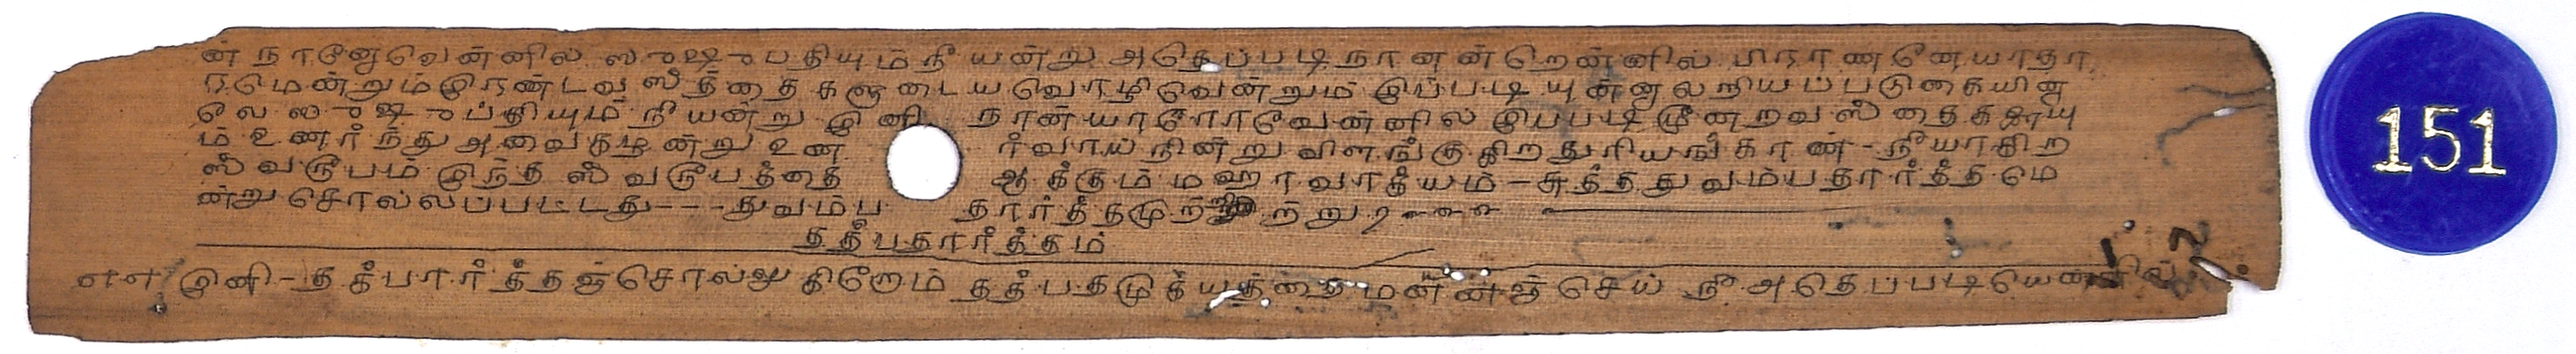 ன் நானேவென்னில் ஸுஷுபதியும் நீ யன்று அதெப்படி நானன்றென்னில் பிராணனேயாதா
ரமென்றும் இரண்டவஸ்த்தை களுடைய வொழிவென்றும் இப்படி யுன்னுலறியப்படுகையின
லெ ஸுஷுப்தியும் நீ யன்று இனி நான் யாரோவென்னில் இப்படி மூன்றவஸ்தைகளையு
ம் உணர்ந்து அவைகழன்று உண ர்வாய் நின்று விளங்குகிற துரியங் காண் - நீயாகிற
ஸ்வரூபம் இந்த ஸ்வரூபத்தை ஆக்கும் மஹாவாக்யம் - சுத்த துவம்பதார்த்தமெ
ன்று சொல்லப்பட்டது - - - துவம்ப தார்த்தமுற்றிற்று
தத்பதார்த்தம்
இனி - தத்பார்த்தஞ் சொல்லுகிறோம் தத்பதமுக்யத்தை மன்னஞ் செய் நீ அதெப்படியென்னில்
151